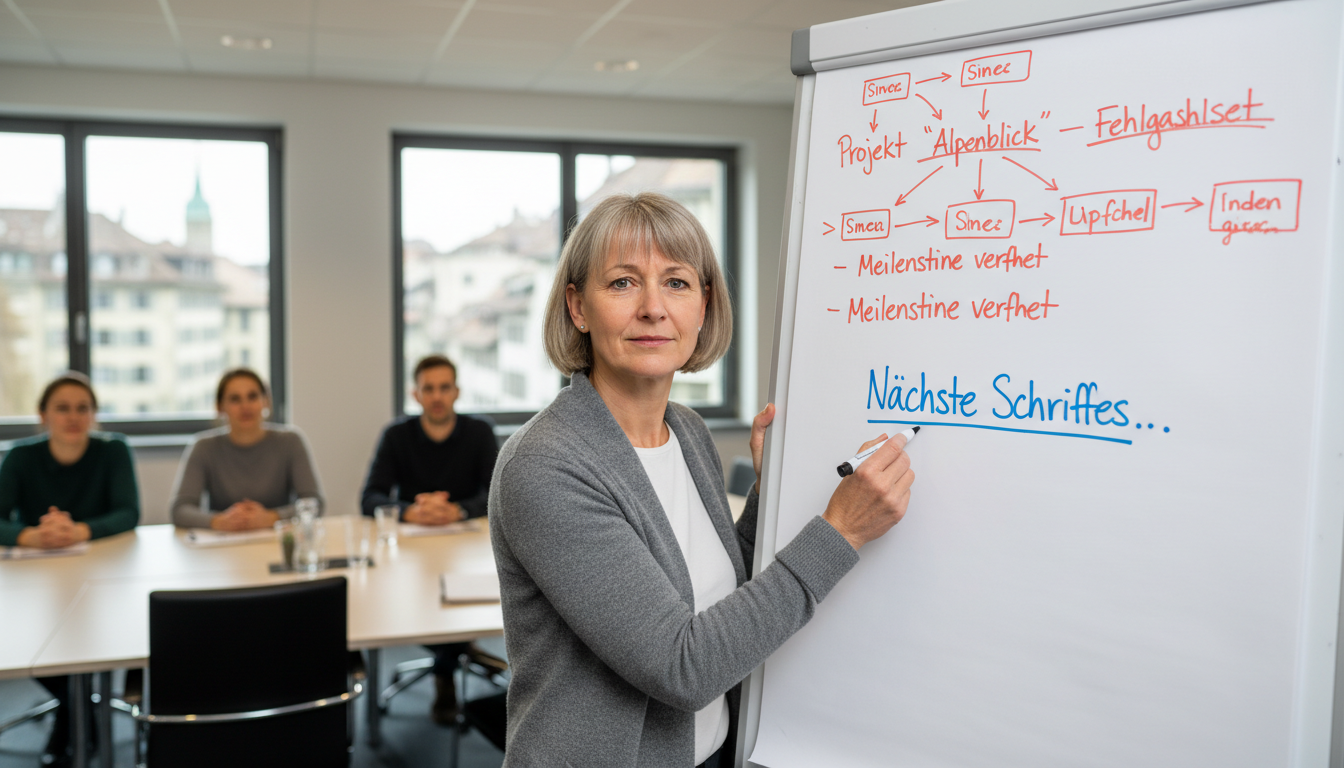 Sinec
Projekt "Alpenblick" — Fehlgashlset
Sinec Upfchel Inden
- Meilenstine verfhet
- Meilenstine verfhet
Nächste Schriffes...